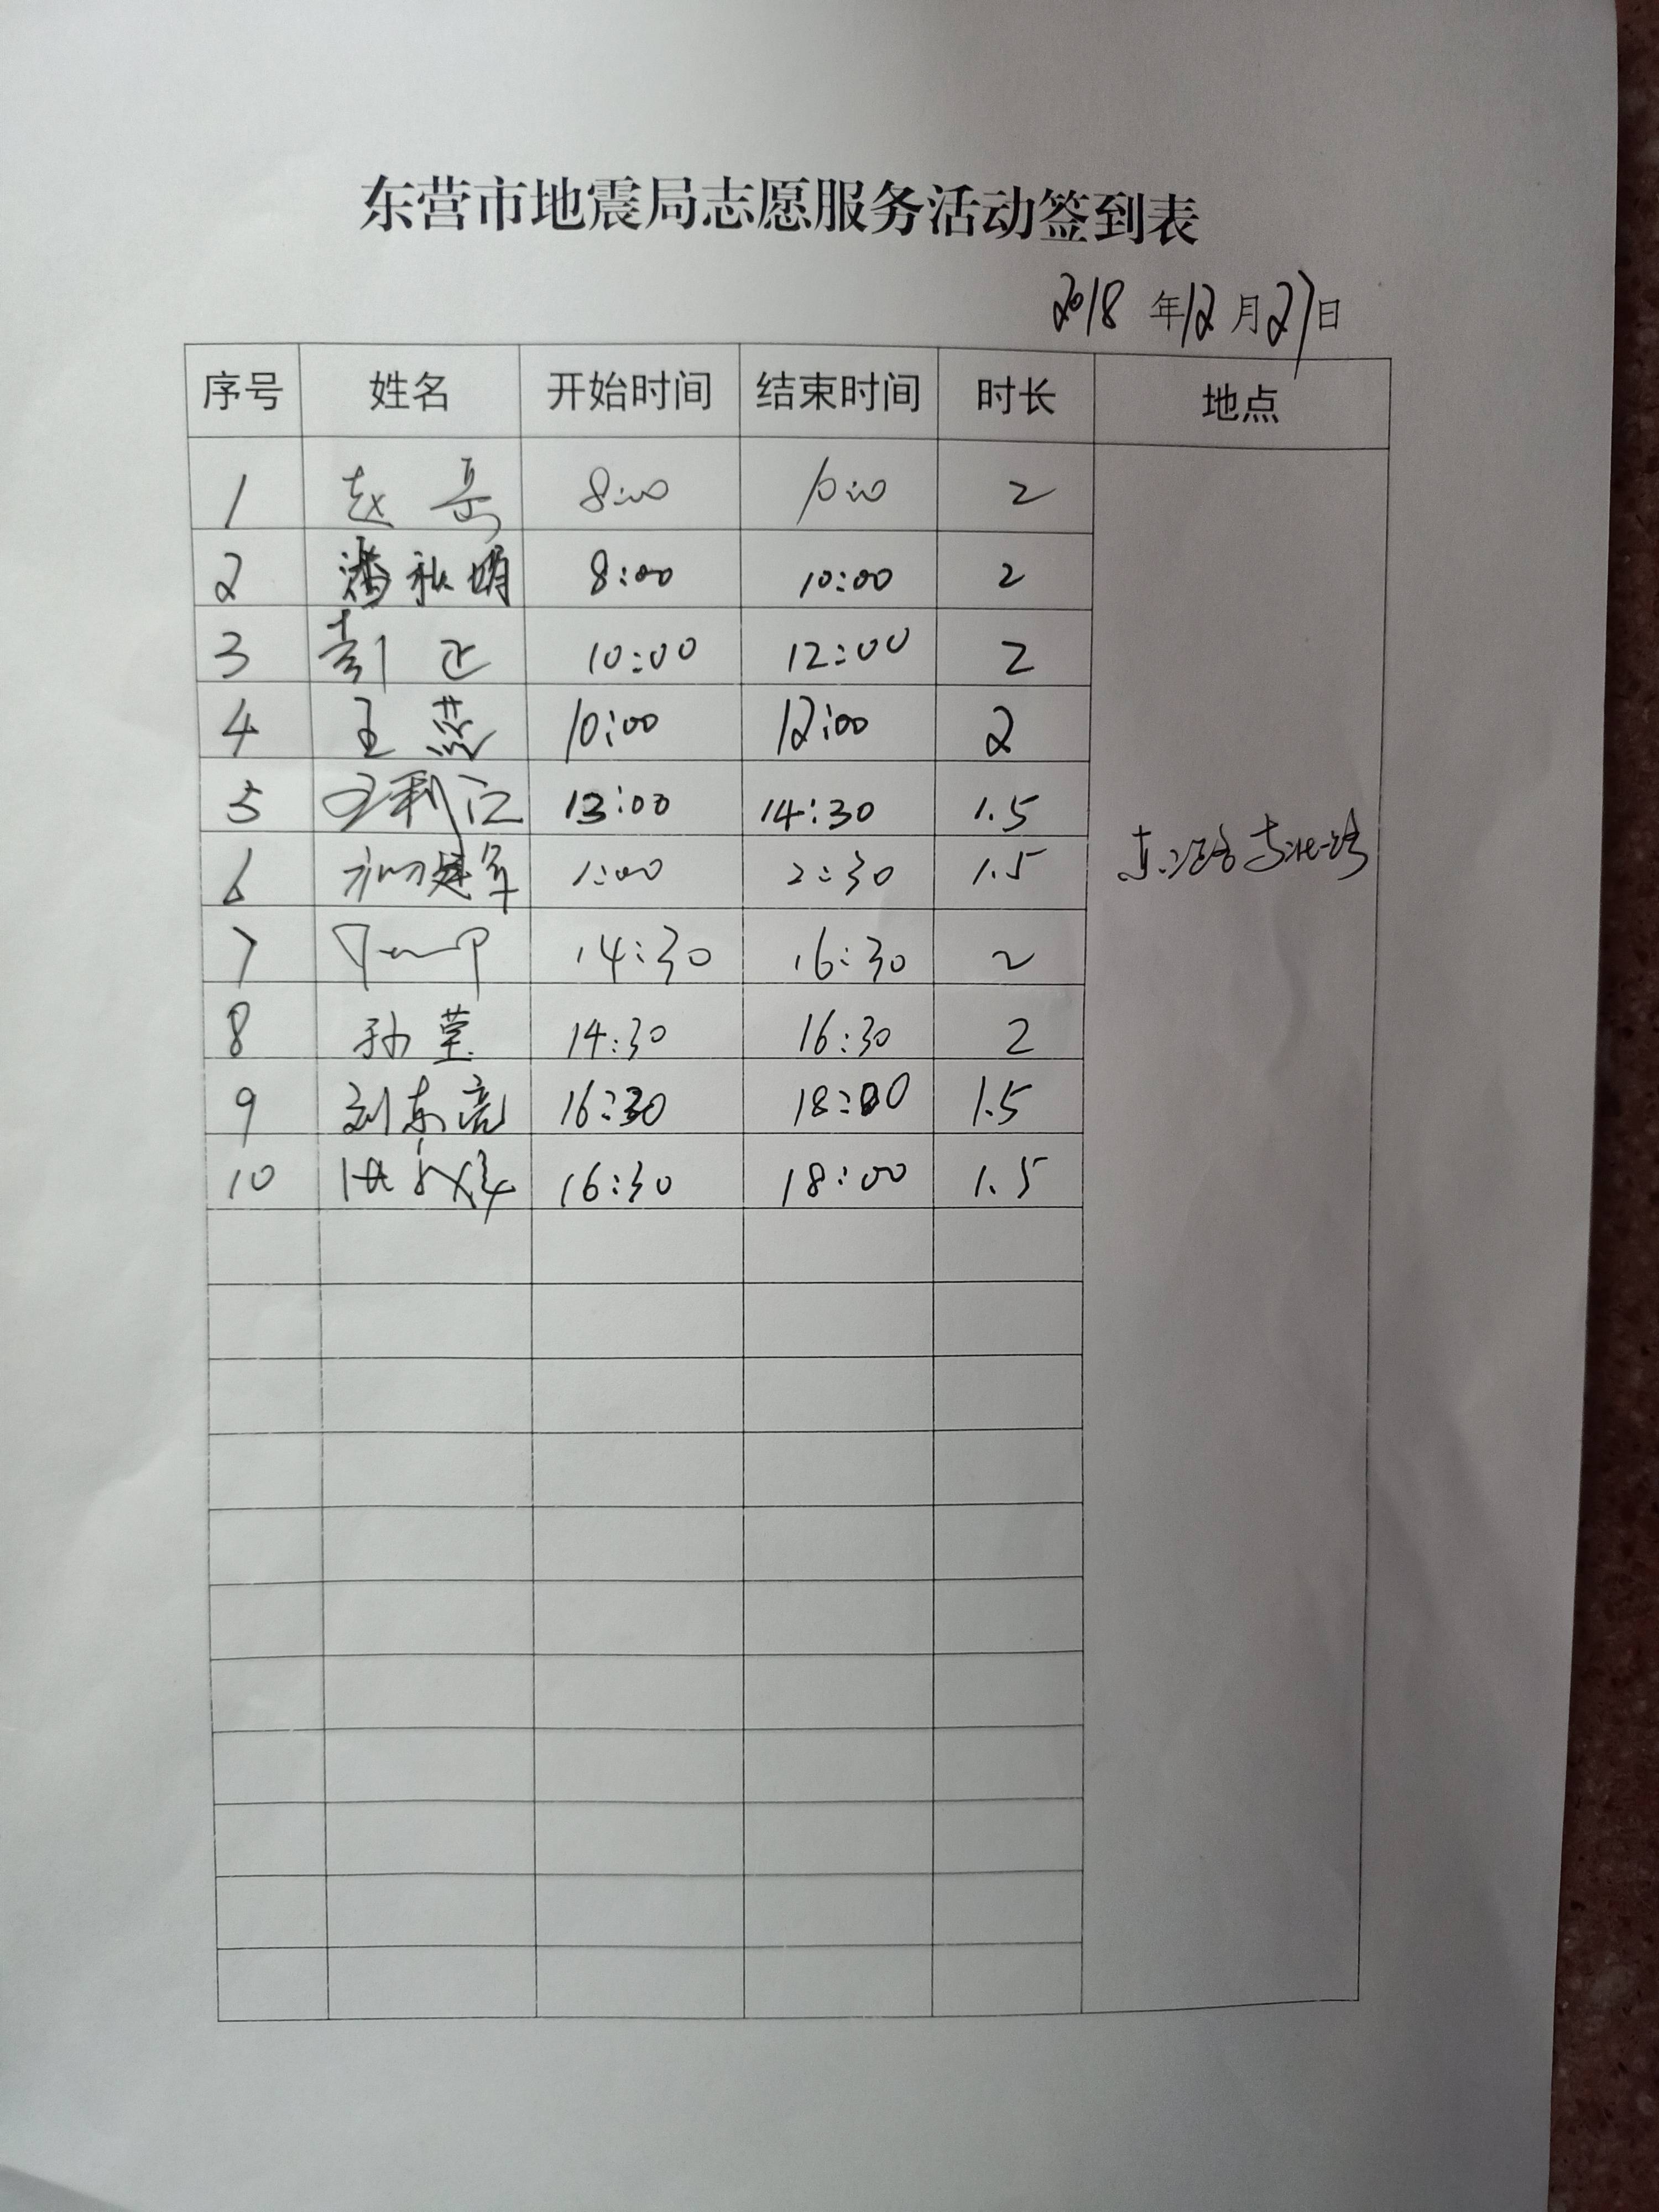 东营市地震局志愿服务活动签到表
2018年12月27日
序号 姓名 开始时间 结束时间 时长 地点
1 赵岳 8:00 10:00 2
2 潘秋娟 8:00 10:00 2
3 彭正 10:00 12:00 2
4 王蕊 10:00 12:00 2
5 王利江 13:00 14:30 1.5
6 建军 1:00 2:30 1.5
7 14:30 16:30 2
8 孙莹 14:30 16:30 2
9 刘东亮 16:30 18:00 1.5
10 16:30 18:00 1.5
东二路